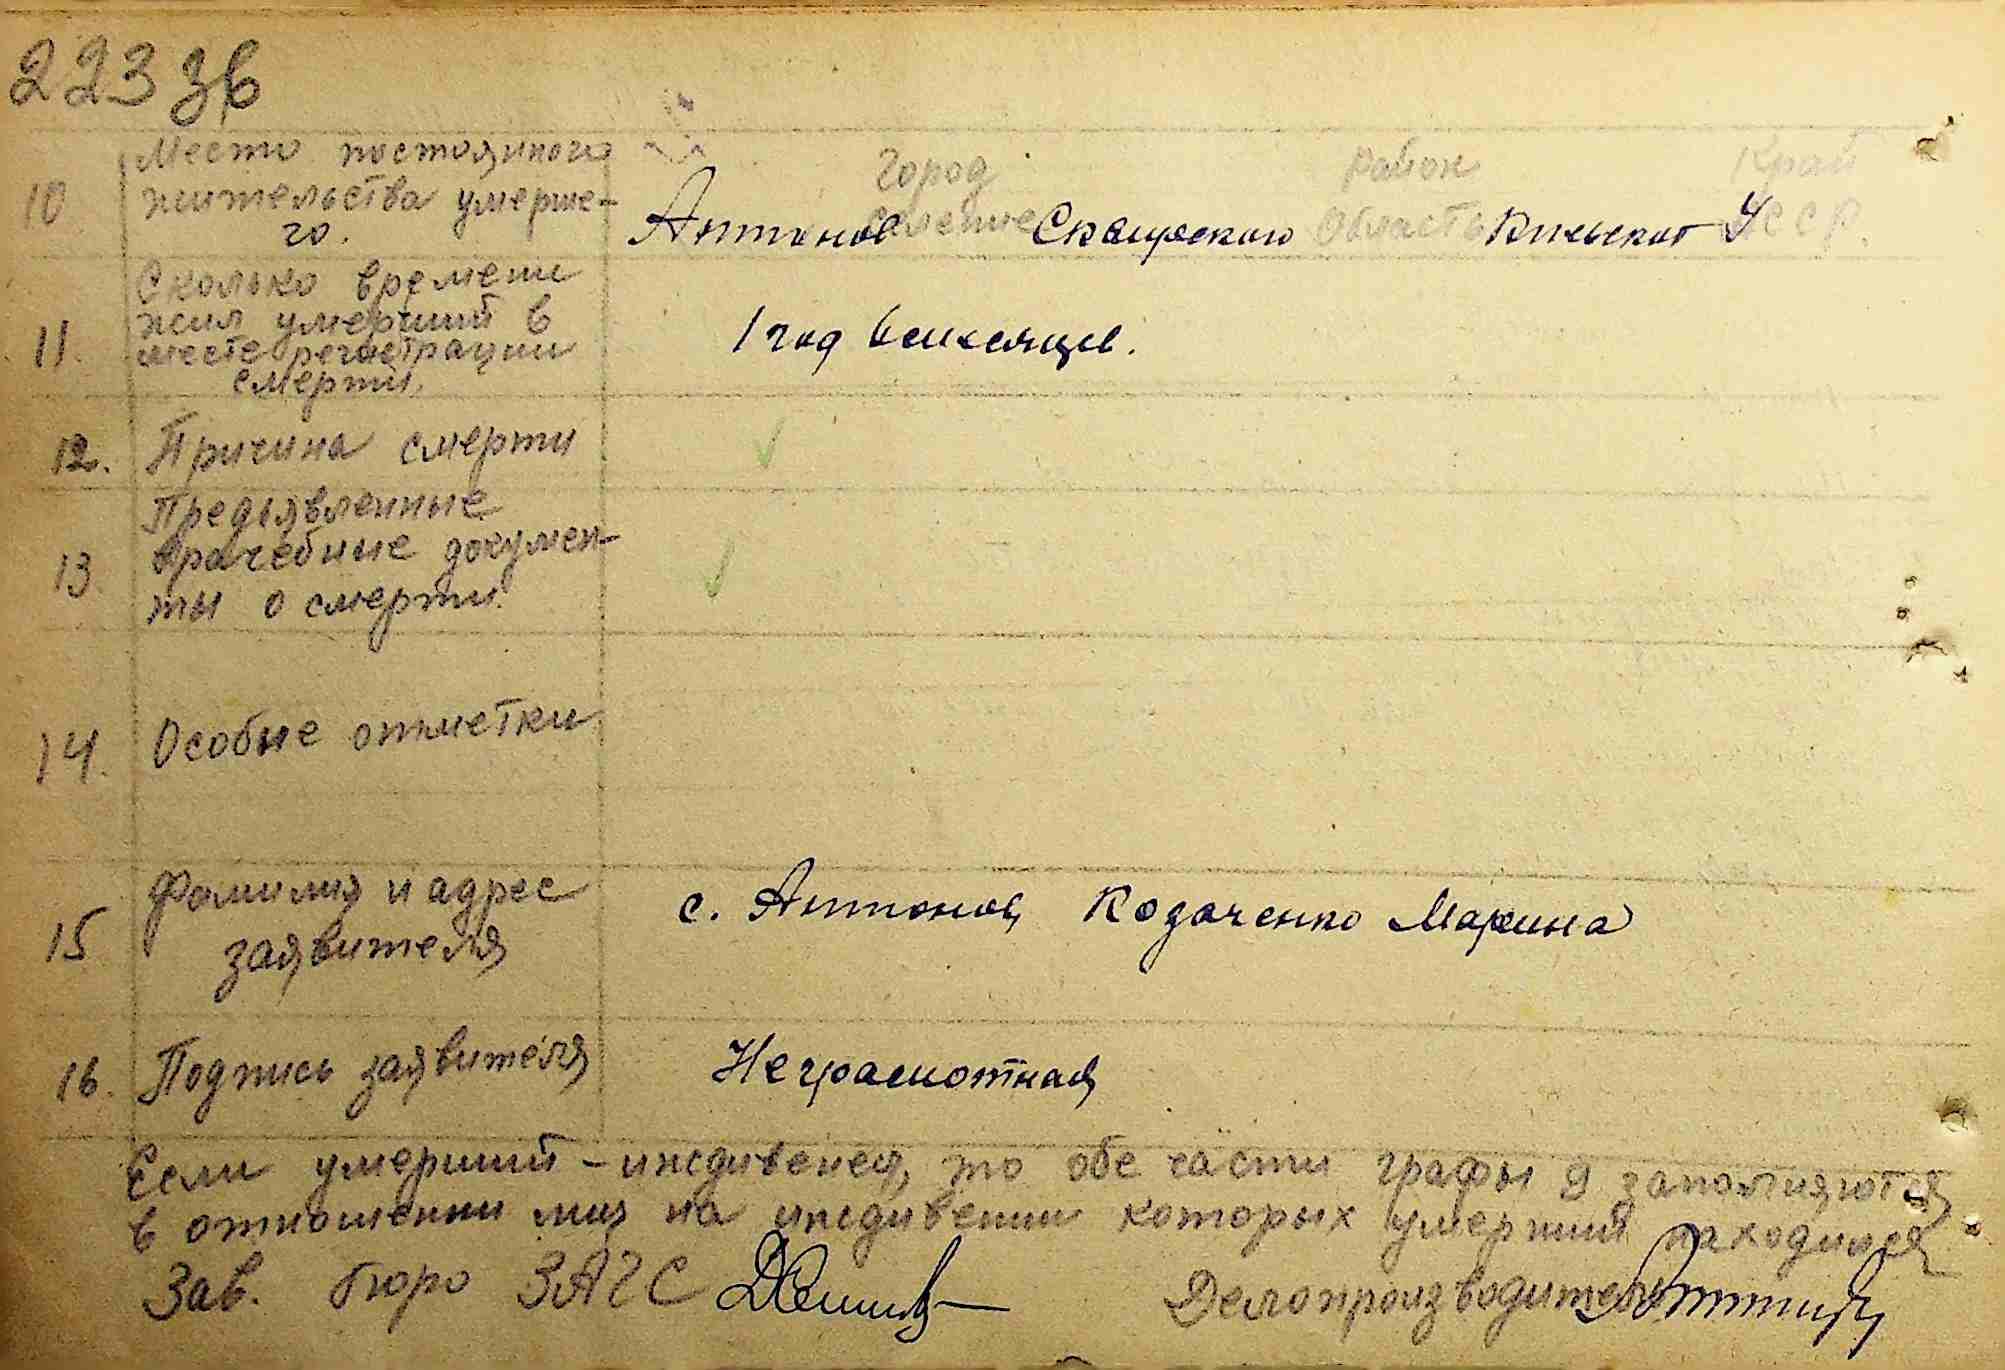 223 зв
Место постоянного
Город Район Край
10 жительства умерше-
го.
Антонов Селение Сквирского Область Киевской УССР.
Сколько времени
жил умерший в
11. месте регистрации
смерти.
1 год 6 месяцев.
12. Причина смерти
Предъявленные
13. врачебные докумен-
ты о смерти.
14. Особые отметки
15 Фамилия и адрес
заявителя
с. Антонов Козаченко Марина
16. Подпись заявителя Неграмотная
Если умерший - иждивенец, то обе части графы 9 заполняются
в отношении лиц на иждивении которых умерший находился
Зав. бюро ЗАГС Делопроизводитель